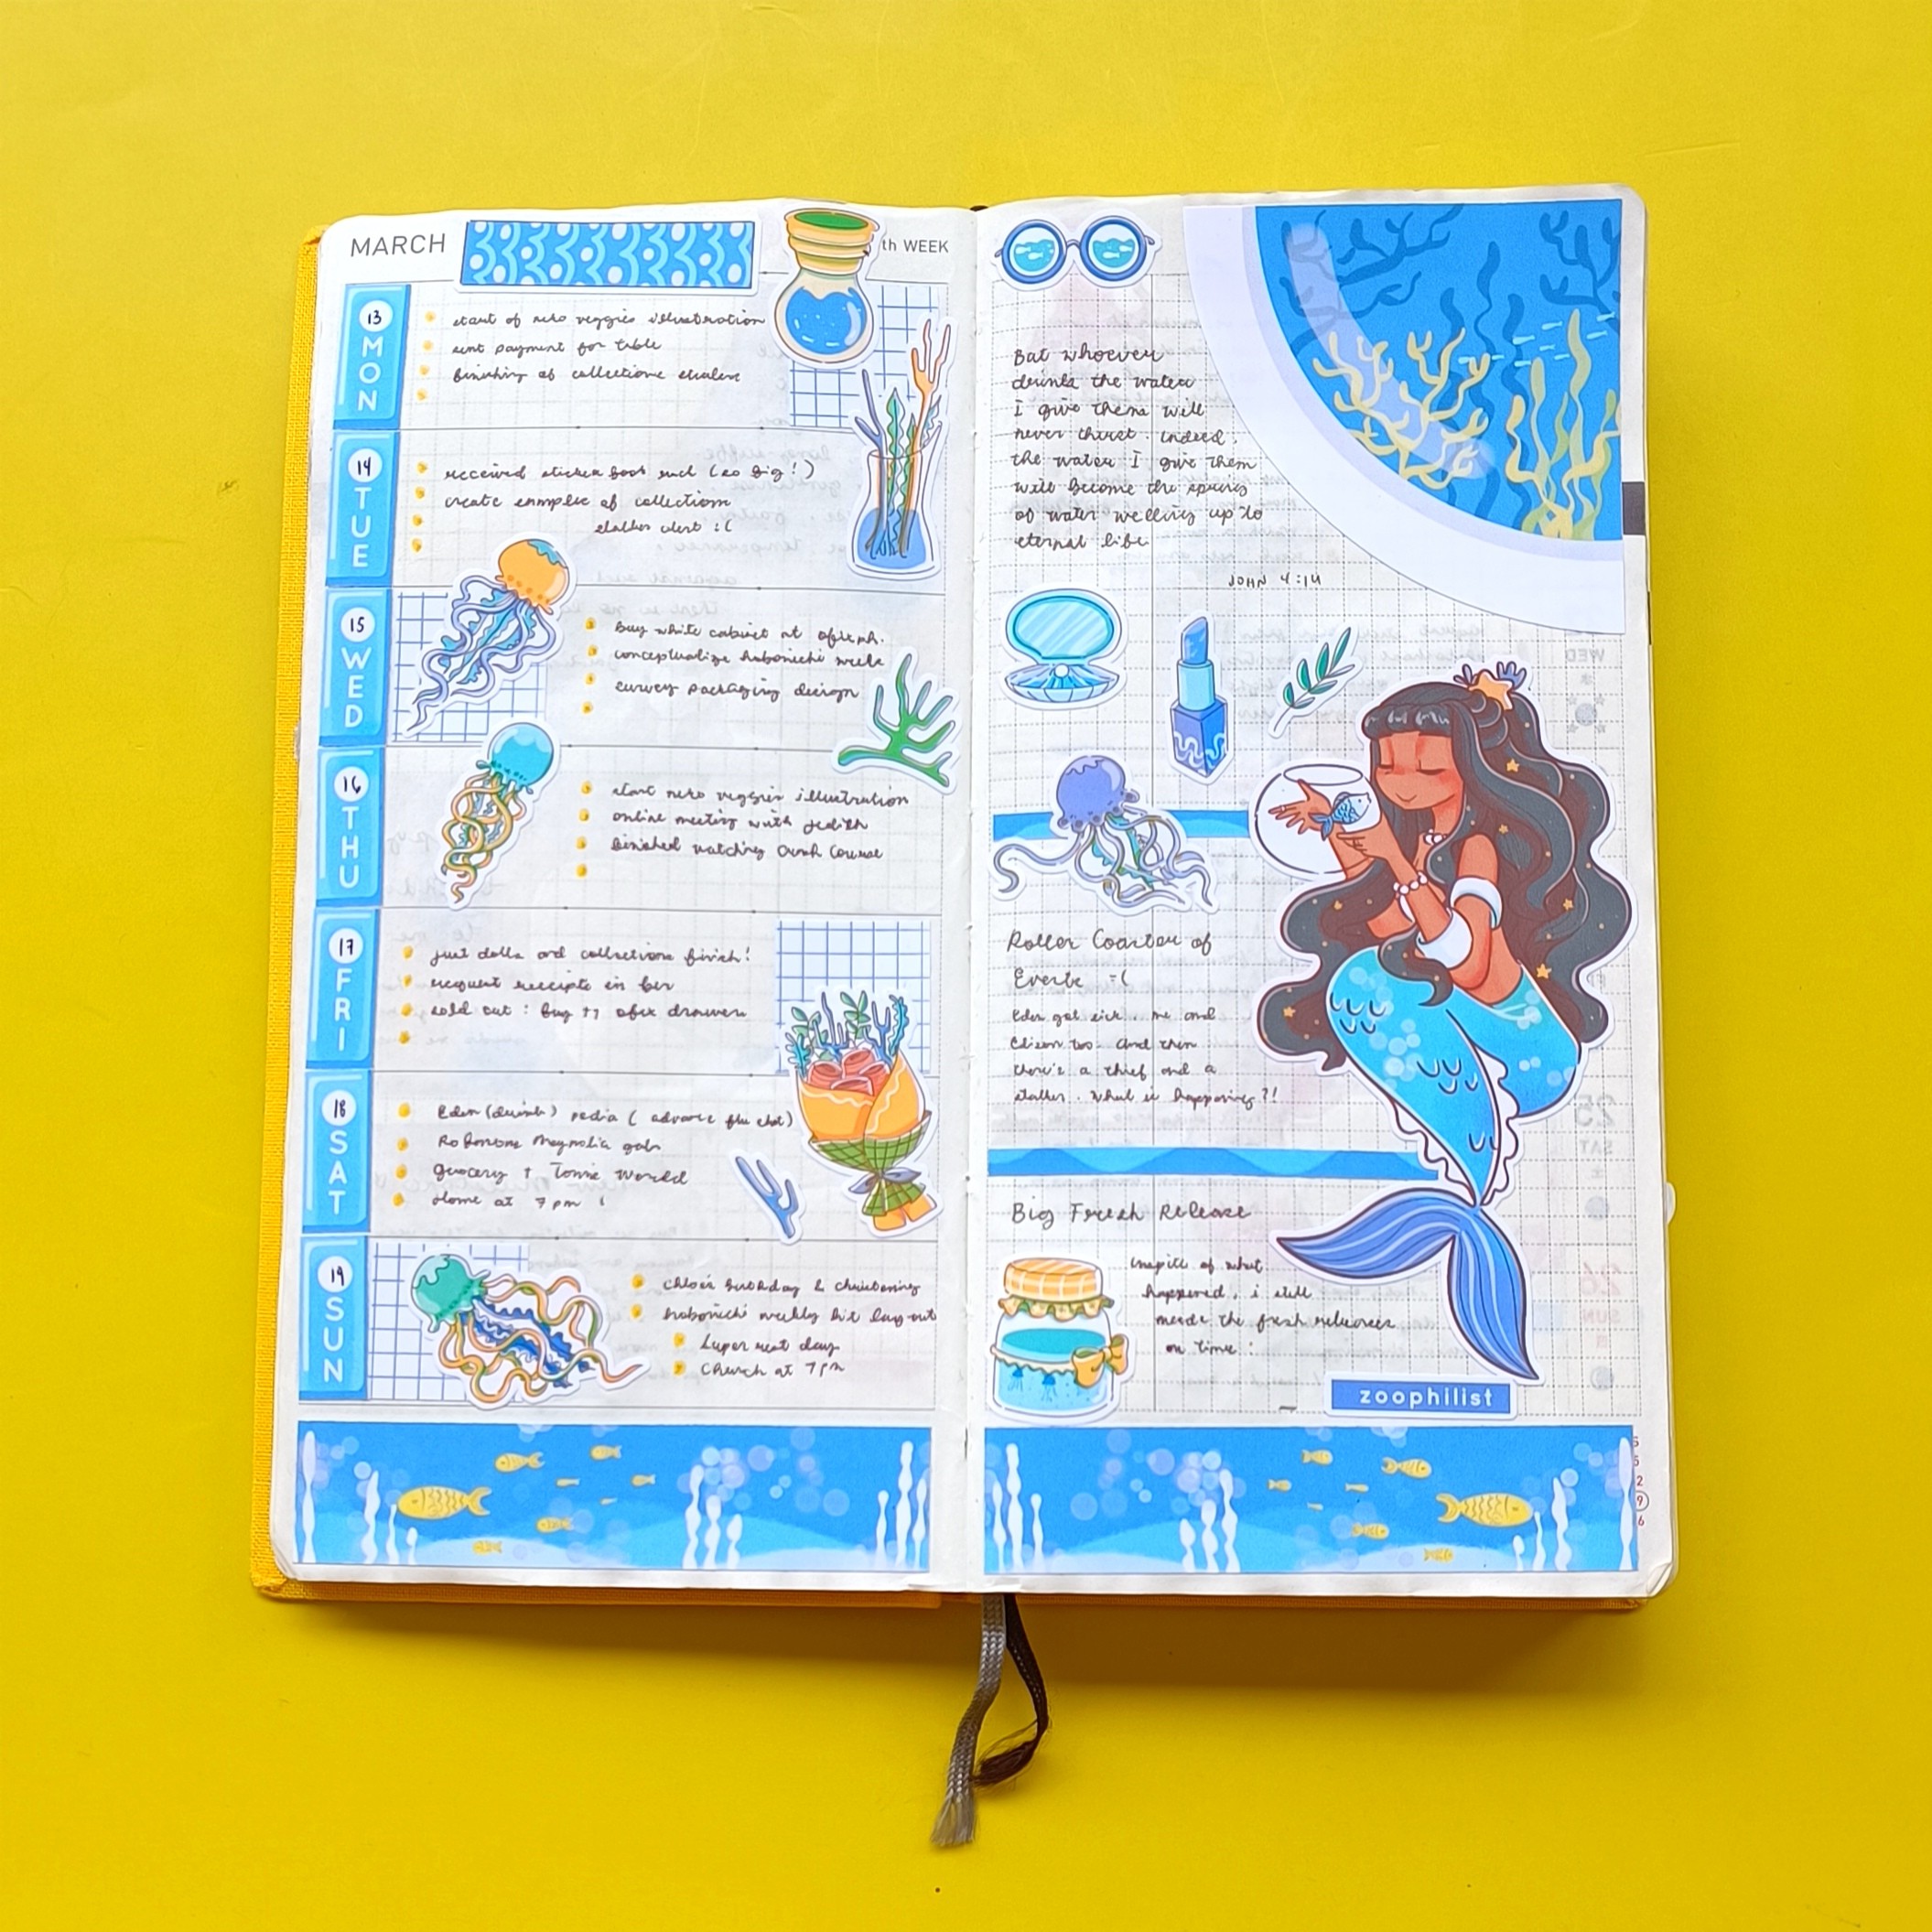 MARCH
th WEEK
13
MON
start of neko veggies illustration
sent payment for table
finishing of collections
14
TUE
received sticker book (so big!)
create samples of collections
stalker alert :(
15
WED
buy white cabinet at
conceptualize hobonichi weeks
survey packaging design
16
THU
start neko veggies illustration
online meeting with
finished watching Crash Course
17
FRI
just dolls and collections finish!
request receipts in
sold out : buy drawers
18
SAT
Eden pedia (advance flu shot)
Robinsons Magnolia
grocery + Tom's World
Home at 7 pm
19
SUN
Chloe's birthday & christening
hobonichi weekly kit lay-out
Super rest day
Church at 7 pm
But whoever
drinks the water
I give them will
never thirst. Indeed,
the water I give them
will become the spring
of water welling up to
eternal life
JOHN 4:14
Roller Coaster of
Events =(
Eden got sick, me and
too. And then
there's a thief and a
stalker. What is happening?!
Big Fresh Release
Inspite of what
happened, i still
made the fresh releases
on time :
zoophilist